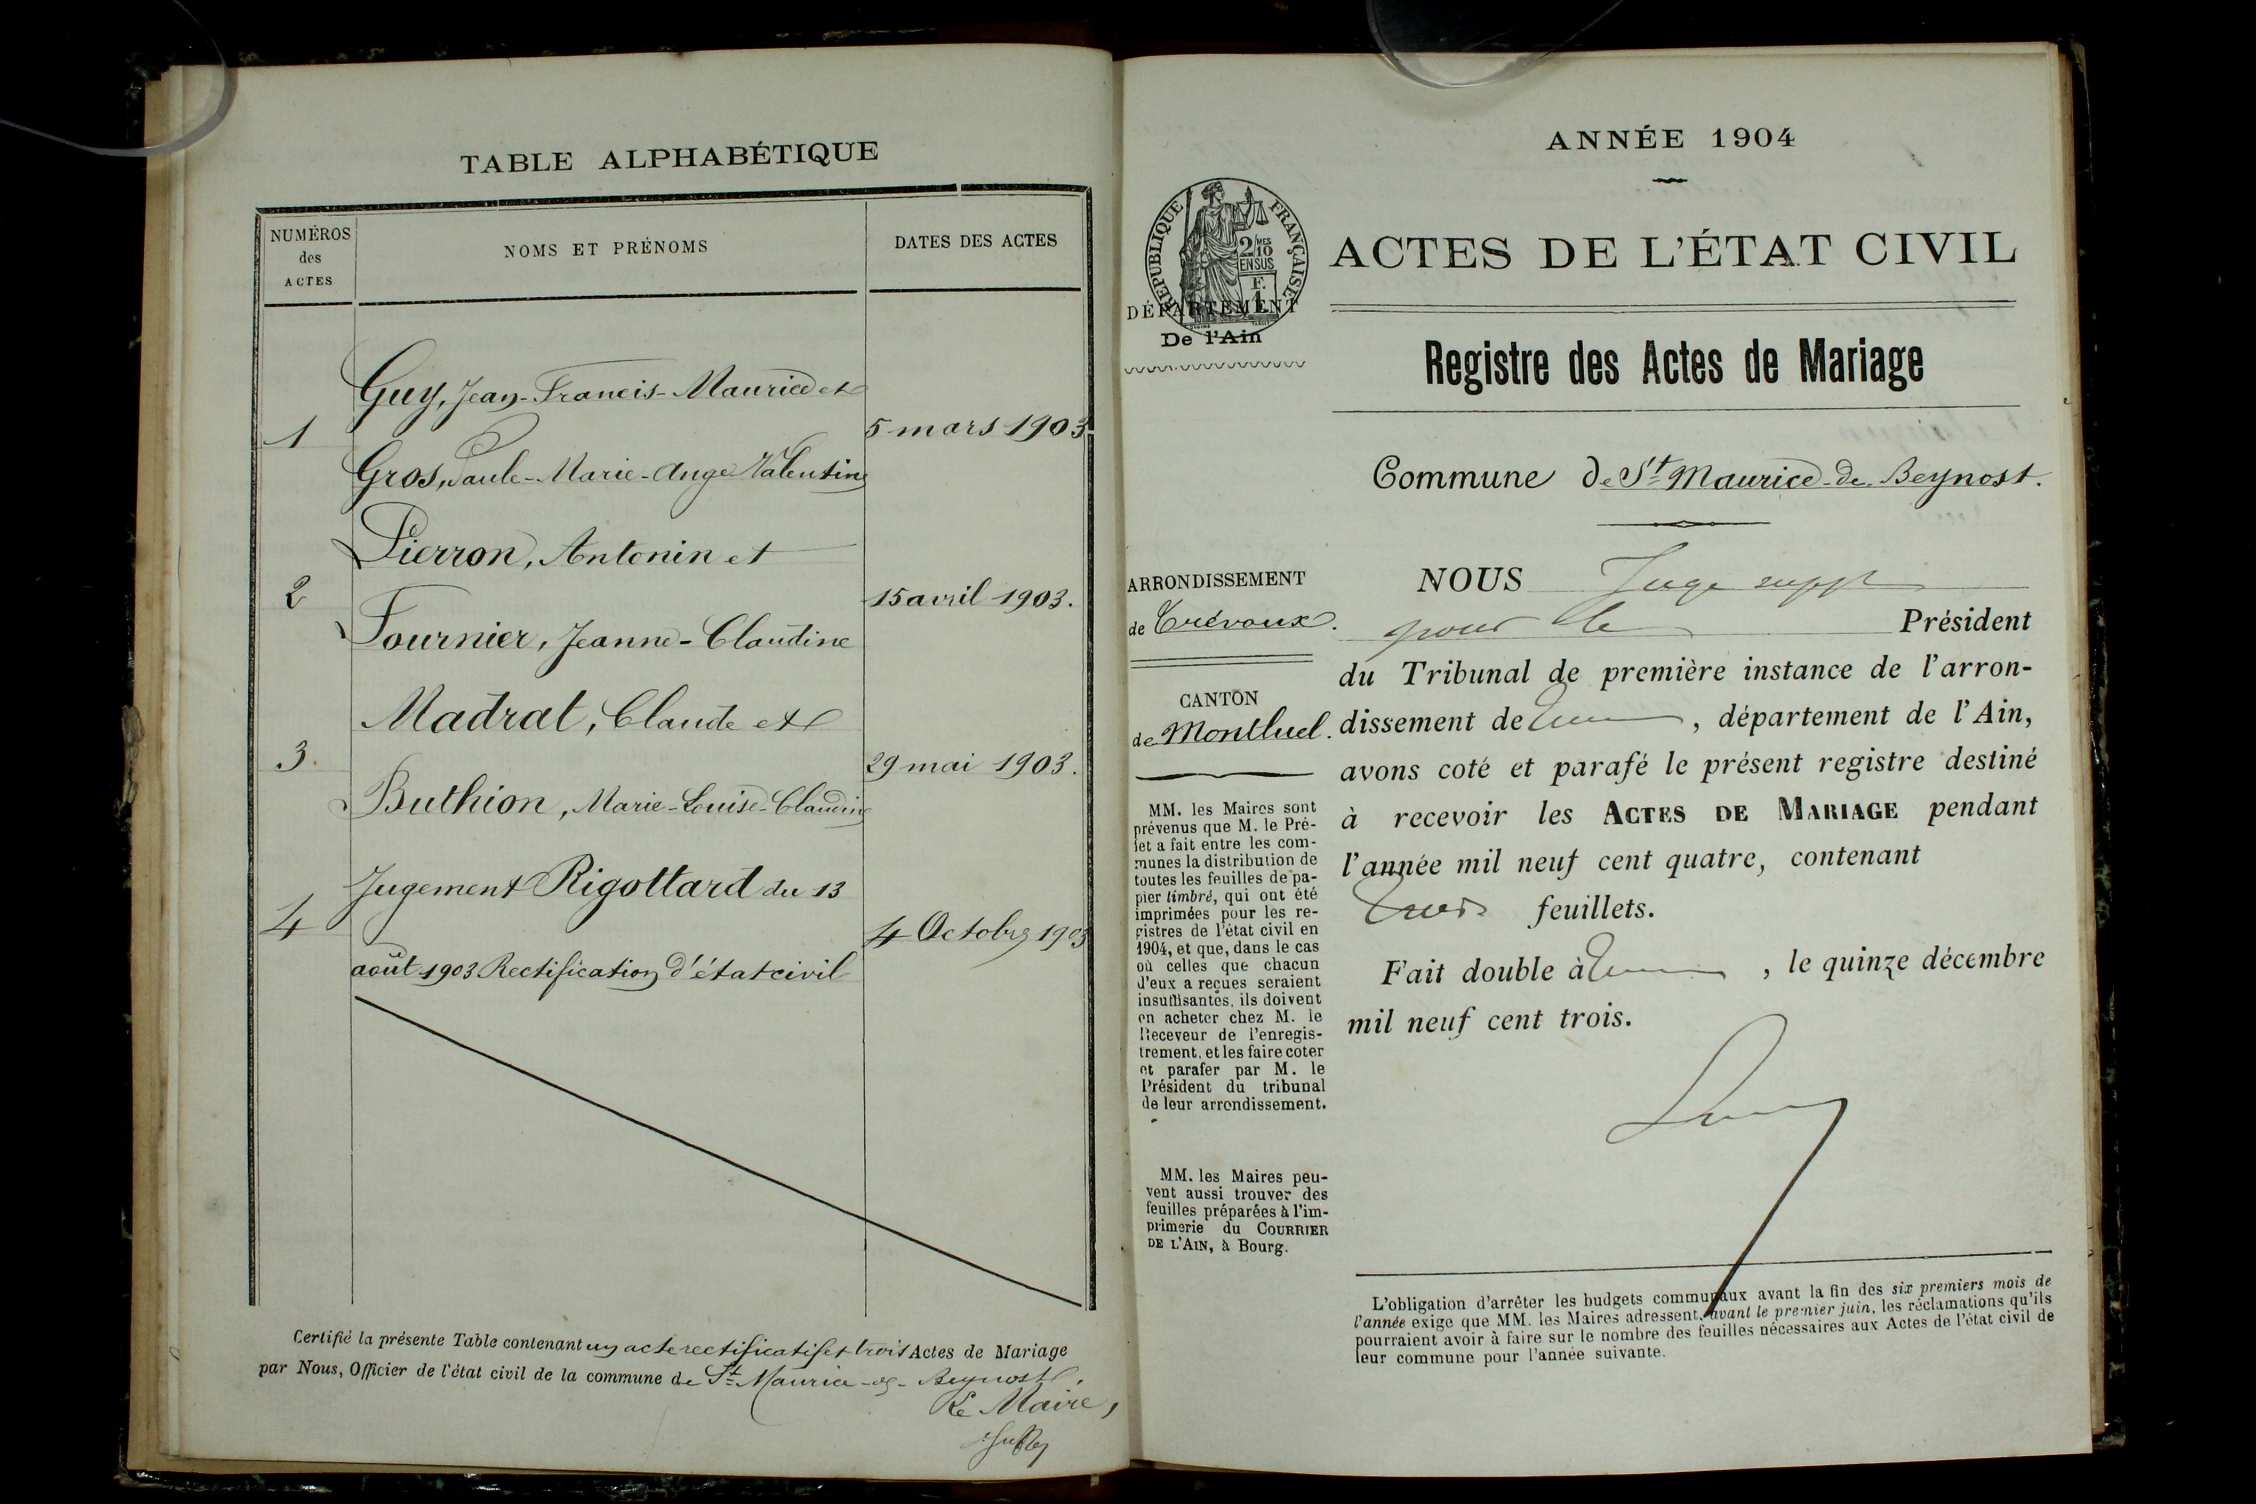 TABLE ALPHABÉTIQUE
NUMÉROS
des
ACTES
NOMS ET PRÉNOMS
DATES DES ACTES
Guy, Jean-Francis-Maurice et
1
5 mars 1903
Gros, Paule-Marie-Ange Valentine
Pierron, Antonin et
2
15 avril 1903.
Fournier, Jeanne-Claudine
Madrat, Claude et
3.
29 mai 1903.
Buthion, Marie-Louise-Claudine
Jugement Rigottard du 13
4
4 Octobre 1903
août 1903 Rectification d'état civil
Certifié la présente Table contenant un acte rectificatif et trois Actes de Mariage
par Nous, Officier de l'état civil de la commune de St Maurice-de-Beynost.
Le Maire,
ANNÉE 1904
RÉPUBLIQUE FRANÇAISE
2/10
MES
EN SUS
F.
1
ACTES DE L'ÉTAT CIVIL
DÉPARTEMENT
De l'Ain
Registre des Actes de Mariage
Commune de St Maurice-de-Beynost.
ARRONDISSEMENT
de Trévoux.
CANTON
de Montluel.
MM. les Maires sont
prévenus que M. le Pré-
fet a fait entre les com-
munes la distribution de
toutes les feuilles de pa-
pier timbré, qui ont été
imprimées pour les re-
gistres de l'état civil en
1904, et que, dans le cas
où celles que chacun
d'eux a reçues seraient
insuffisantes, ils doivent
en acheter chez M. le
Receveur de l'enregis-
trement, et les faire coter
et parafer par M. le
Président du tribunal
de leur arrondissement.
MM. les Maires peu-
vent aussi trouver des
feuilles préparées à l'im-
primerie du COURRIER
DE L'AIN, à Bourg.
NOUS Juge suppt
pour le Président
du Tribunal de première instance de l'arron-
dissement de , département de l'Ain,
avons coté et parafé le présent registre destiné
à recevoir les ACTES DE MARIAGE pendant
l'année mil neuf cent quatre, contenant
trois feuillets.
Fait double à , le quinze décembre
mil neuf cent trois.
L'obligation d'arrêter les budgets communaux avant la fin des six premiers mois de
l'année exige que MM. les Maires adressent, avant le premier juin, les réclamations qu'ils
pourraient avoir à faire sur le nombre des feuilles nécessaires aux Actes de l'état civil de
leur commune pour l'année suivante.